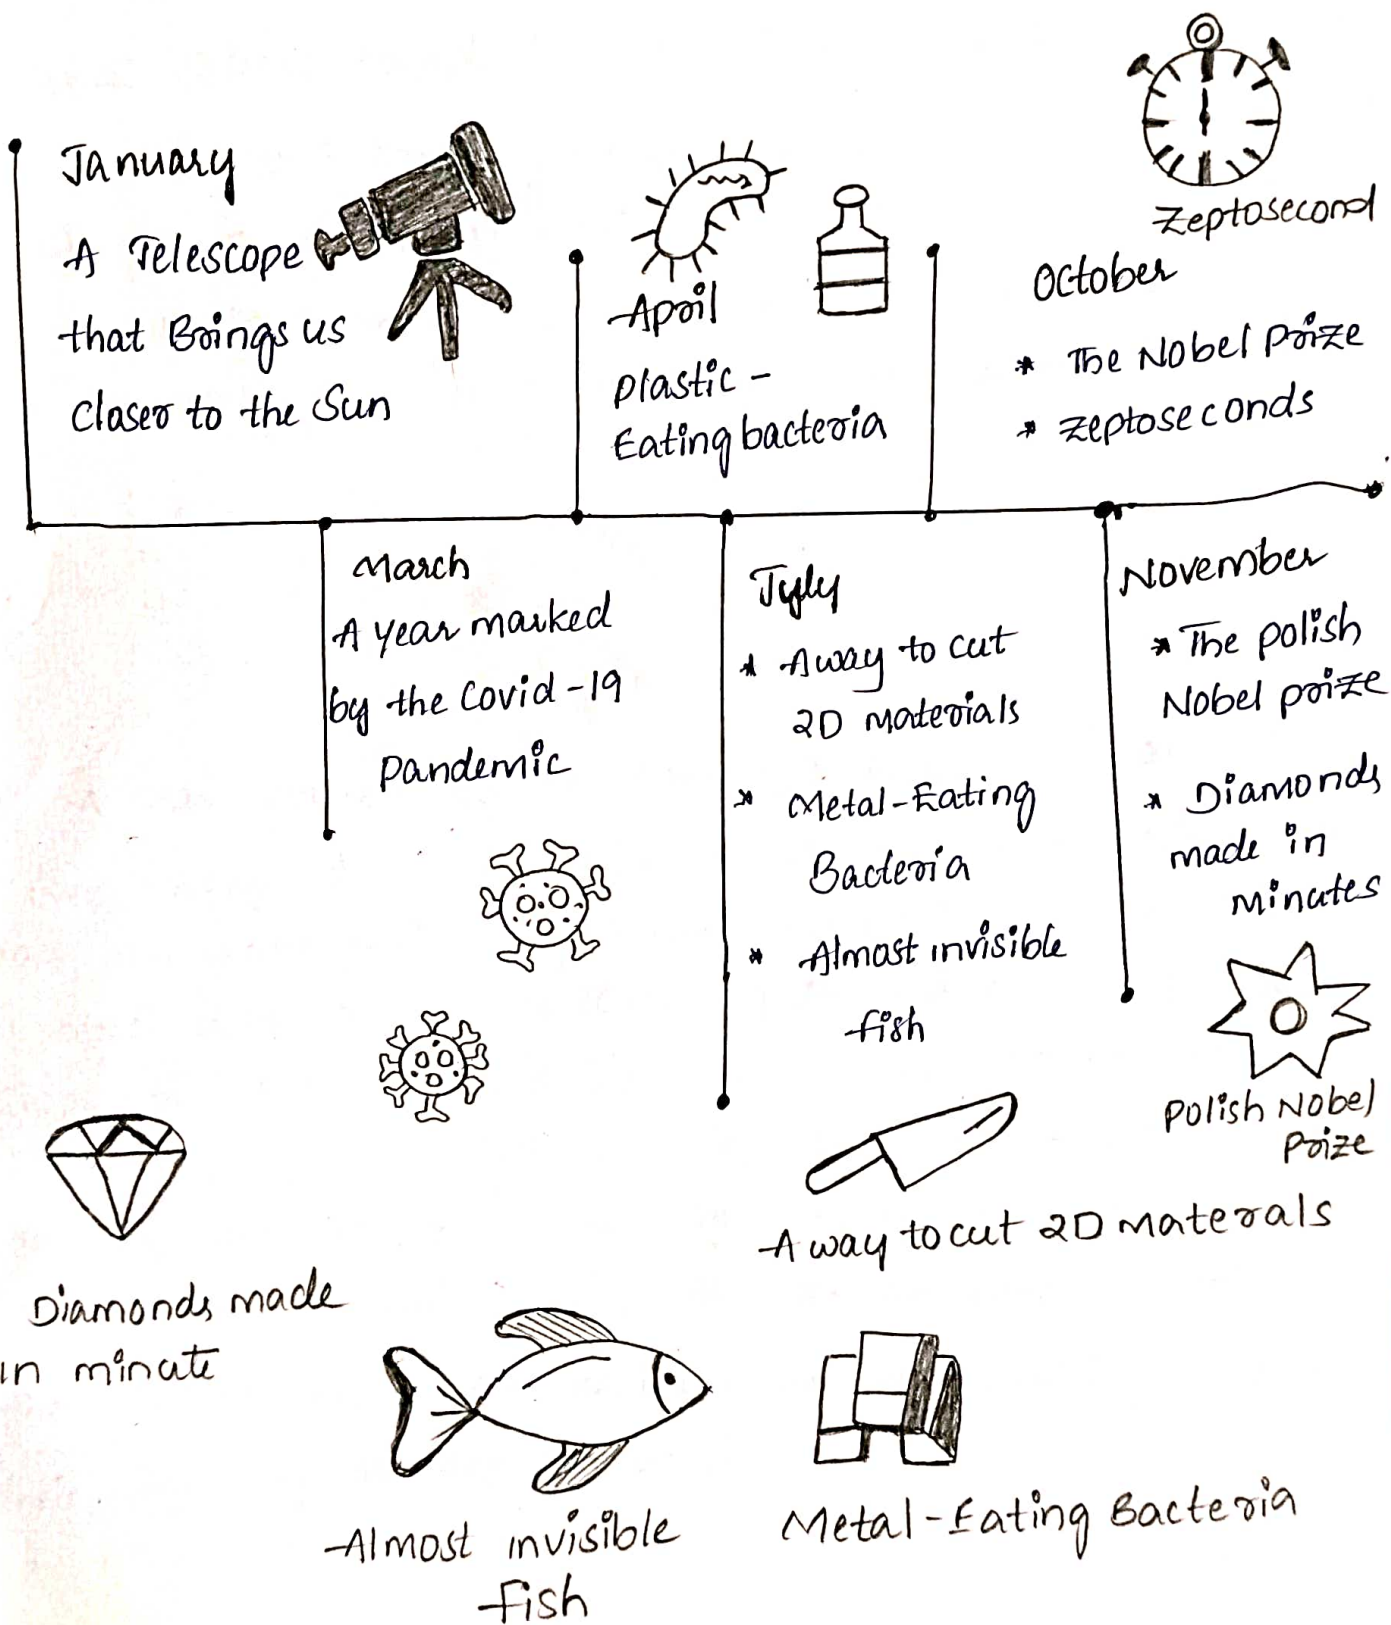 January
A Telescope
that Brings us
Closer to the Sun
April
Plastic -
Eating bacteria
Zeptosecond
October
* The Nobel Prize
* Zeptoseconds
March
A year marked
by the Covid -19
Pandemic
July
* A way to cut
2D materials
* Metal-Eating
Bacteria
* Almost invisible
fish
November
* The polish
Nobel prize
* Diamonds
made in
minutes
Polish Nobel
Prize
A way to cut 2D Materals
Diamonds made
in minute
Almost invisible
fish
Metal-Eating Bacteria